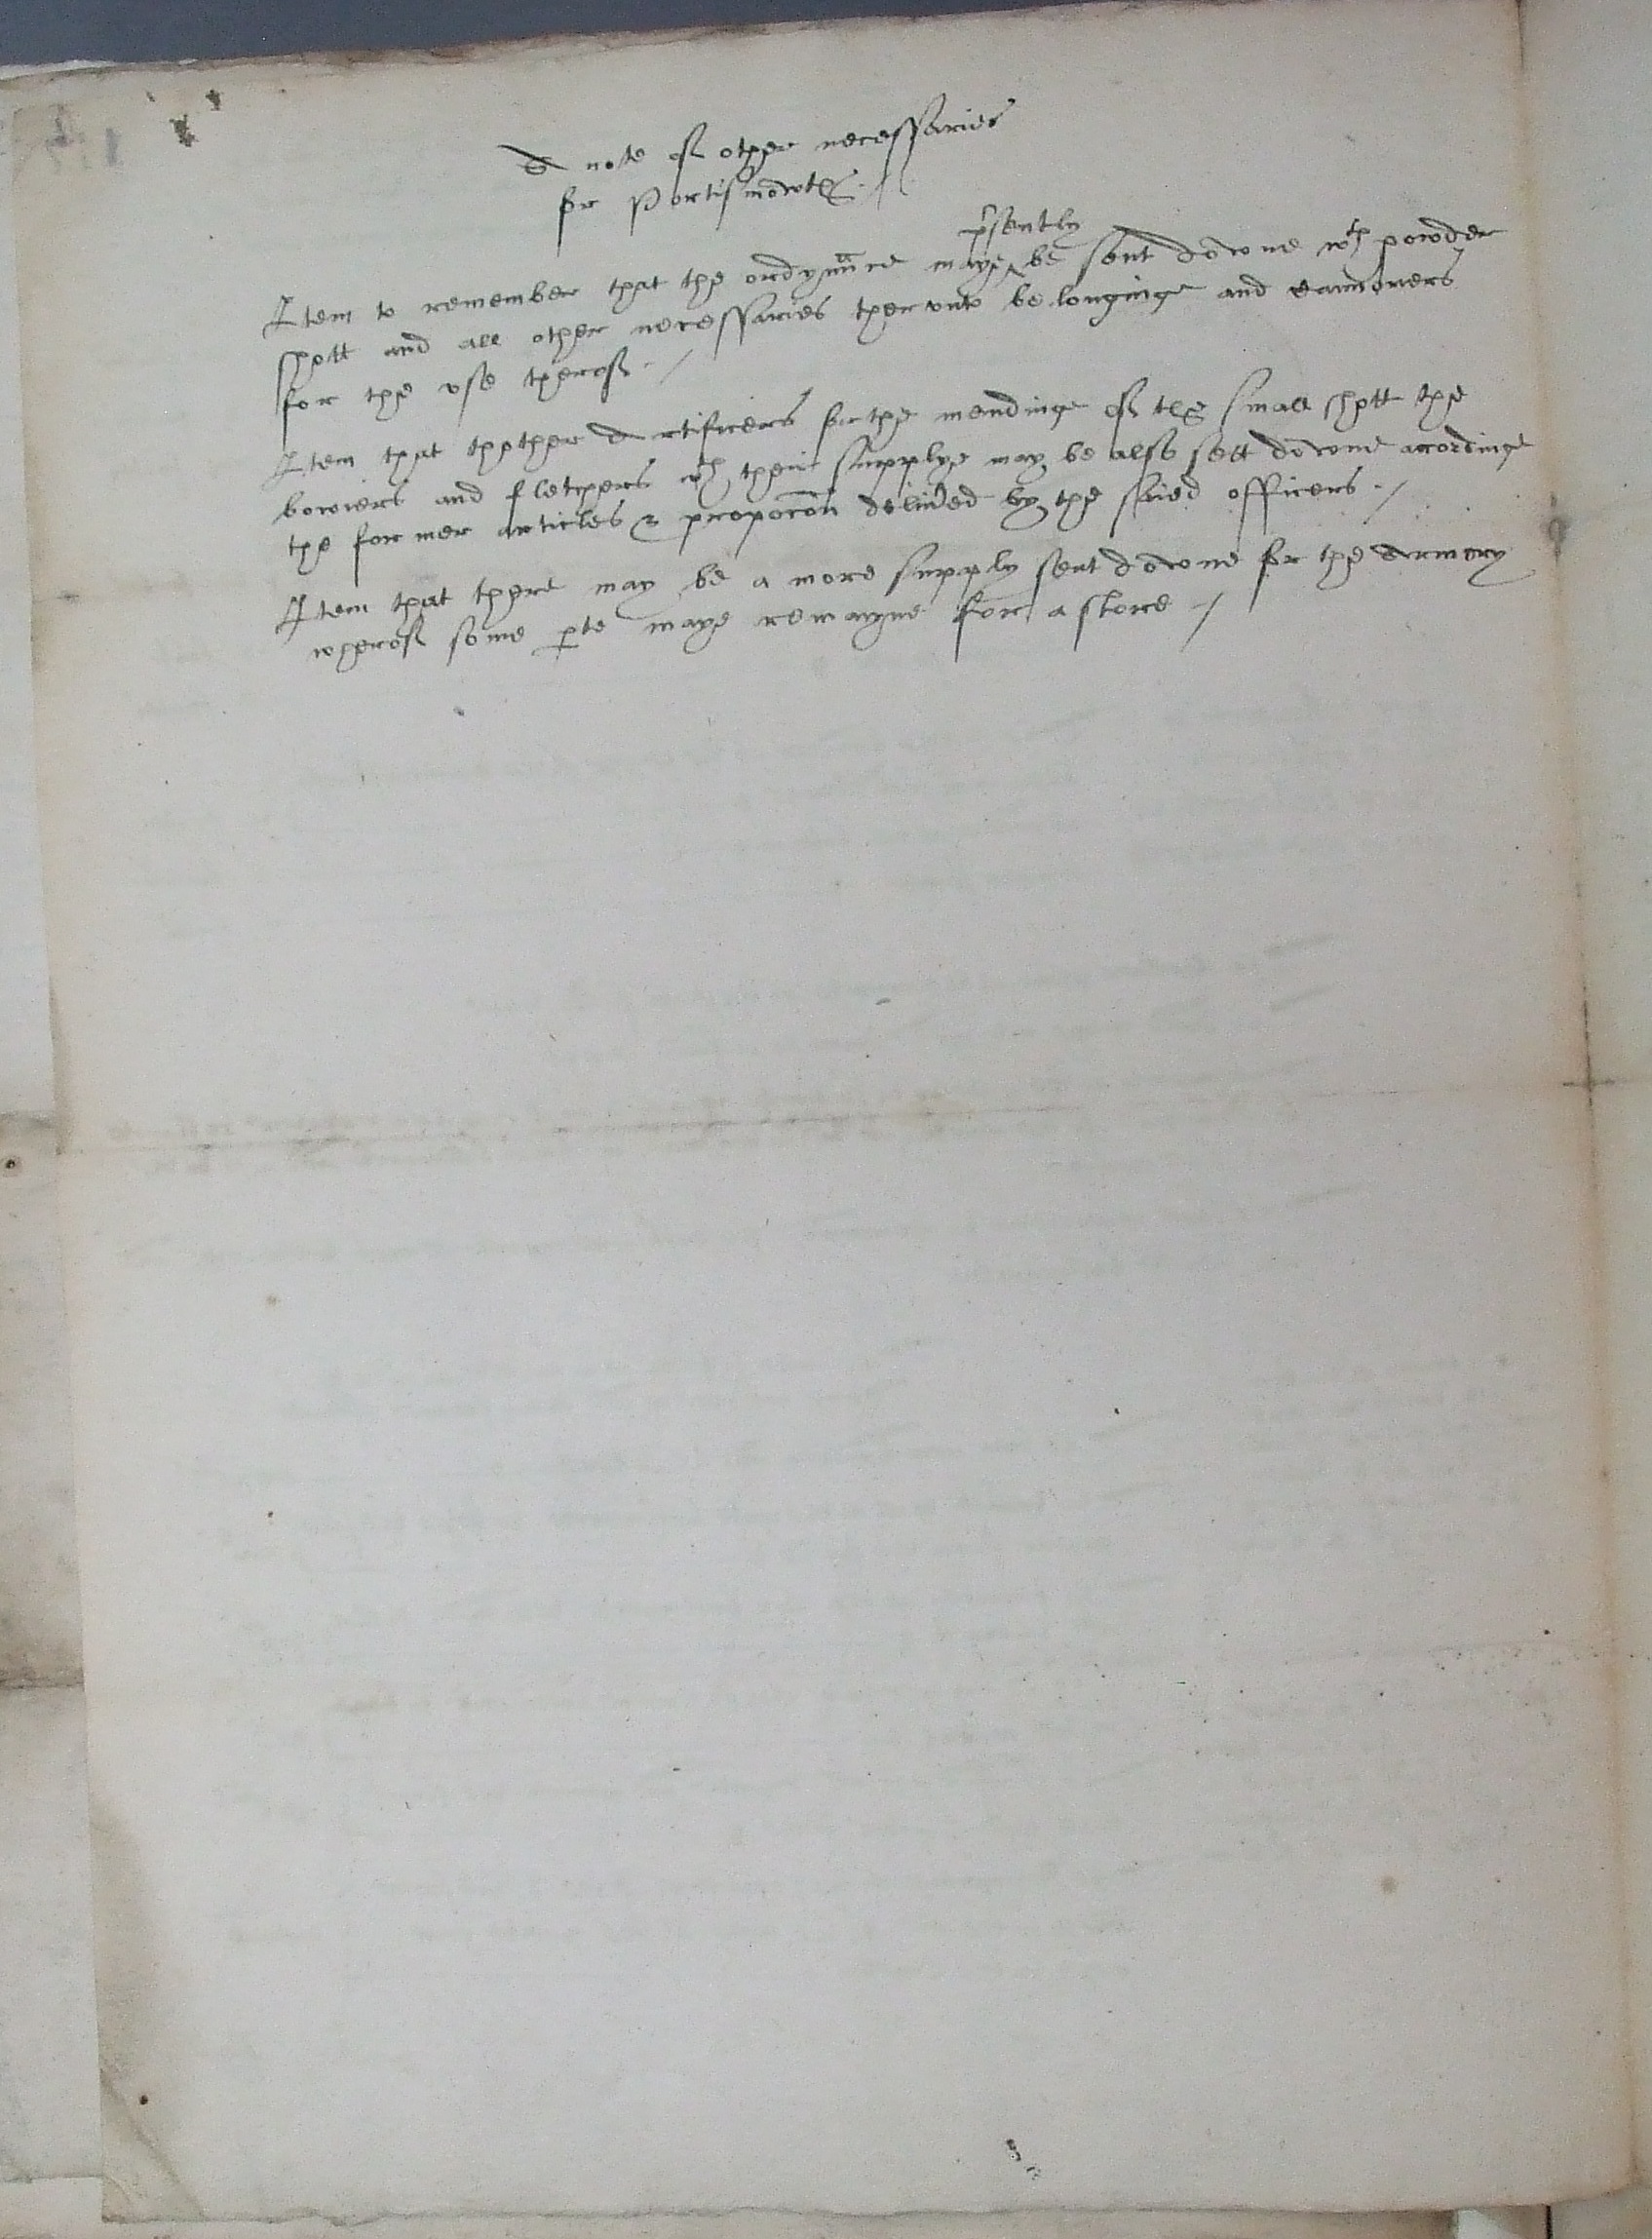 A note of other necessaries
for Portismowth ./.
p'sently
Item to remember that the ordynnce maye ^ be sent downe wth powder
shott and all other necessaries therunto belonginge and cannoners
for the use therof ./
Item that thother Artificers for the mendinge of the small shott the
bowiers and fletchers wth their supplye may be also sett downe accordinge
the former articles & proporcon deliu'ed by the saied officers ./
Item that there may be a more supply sent downe for the Armory
wherof some pte maye remayne for a store ./